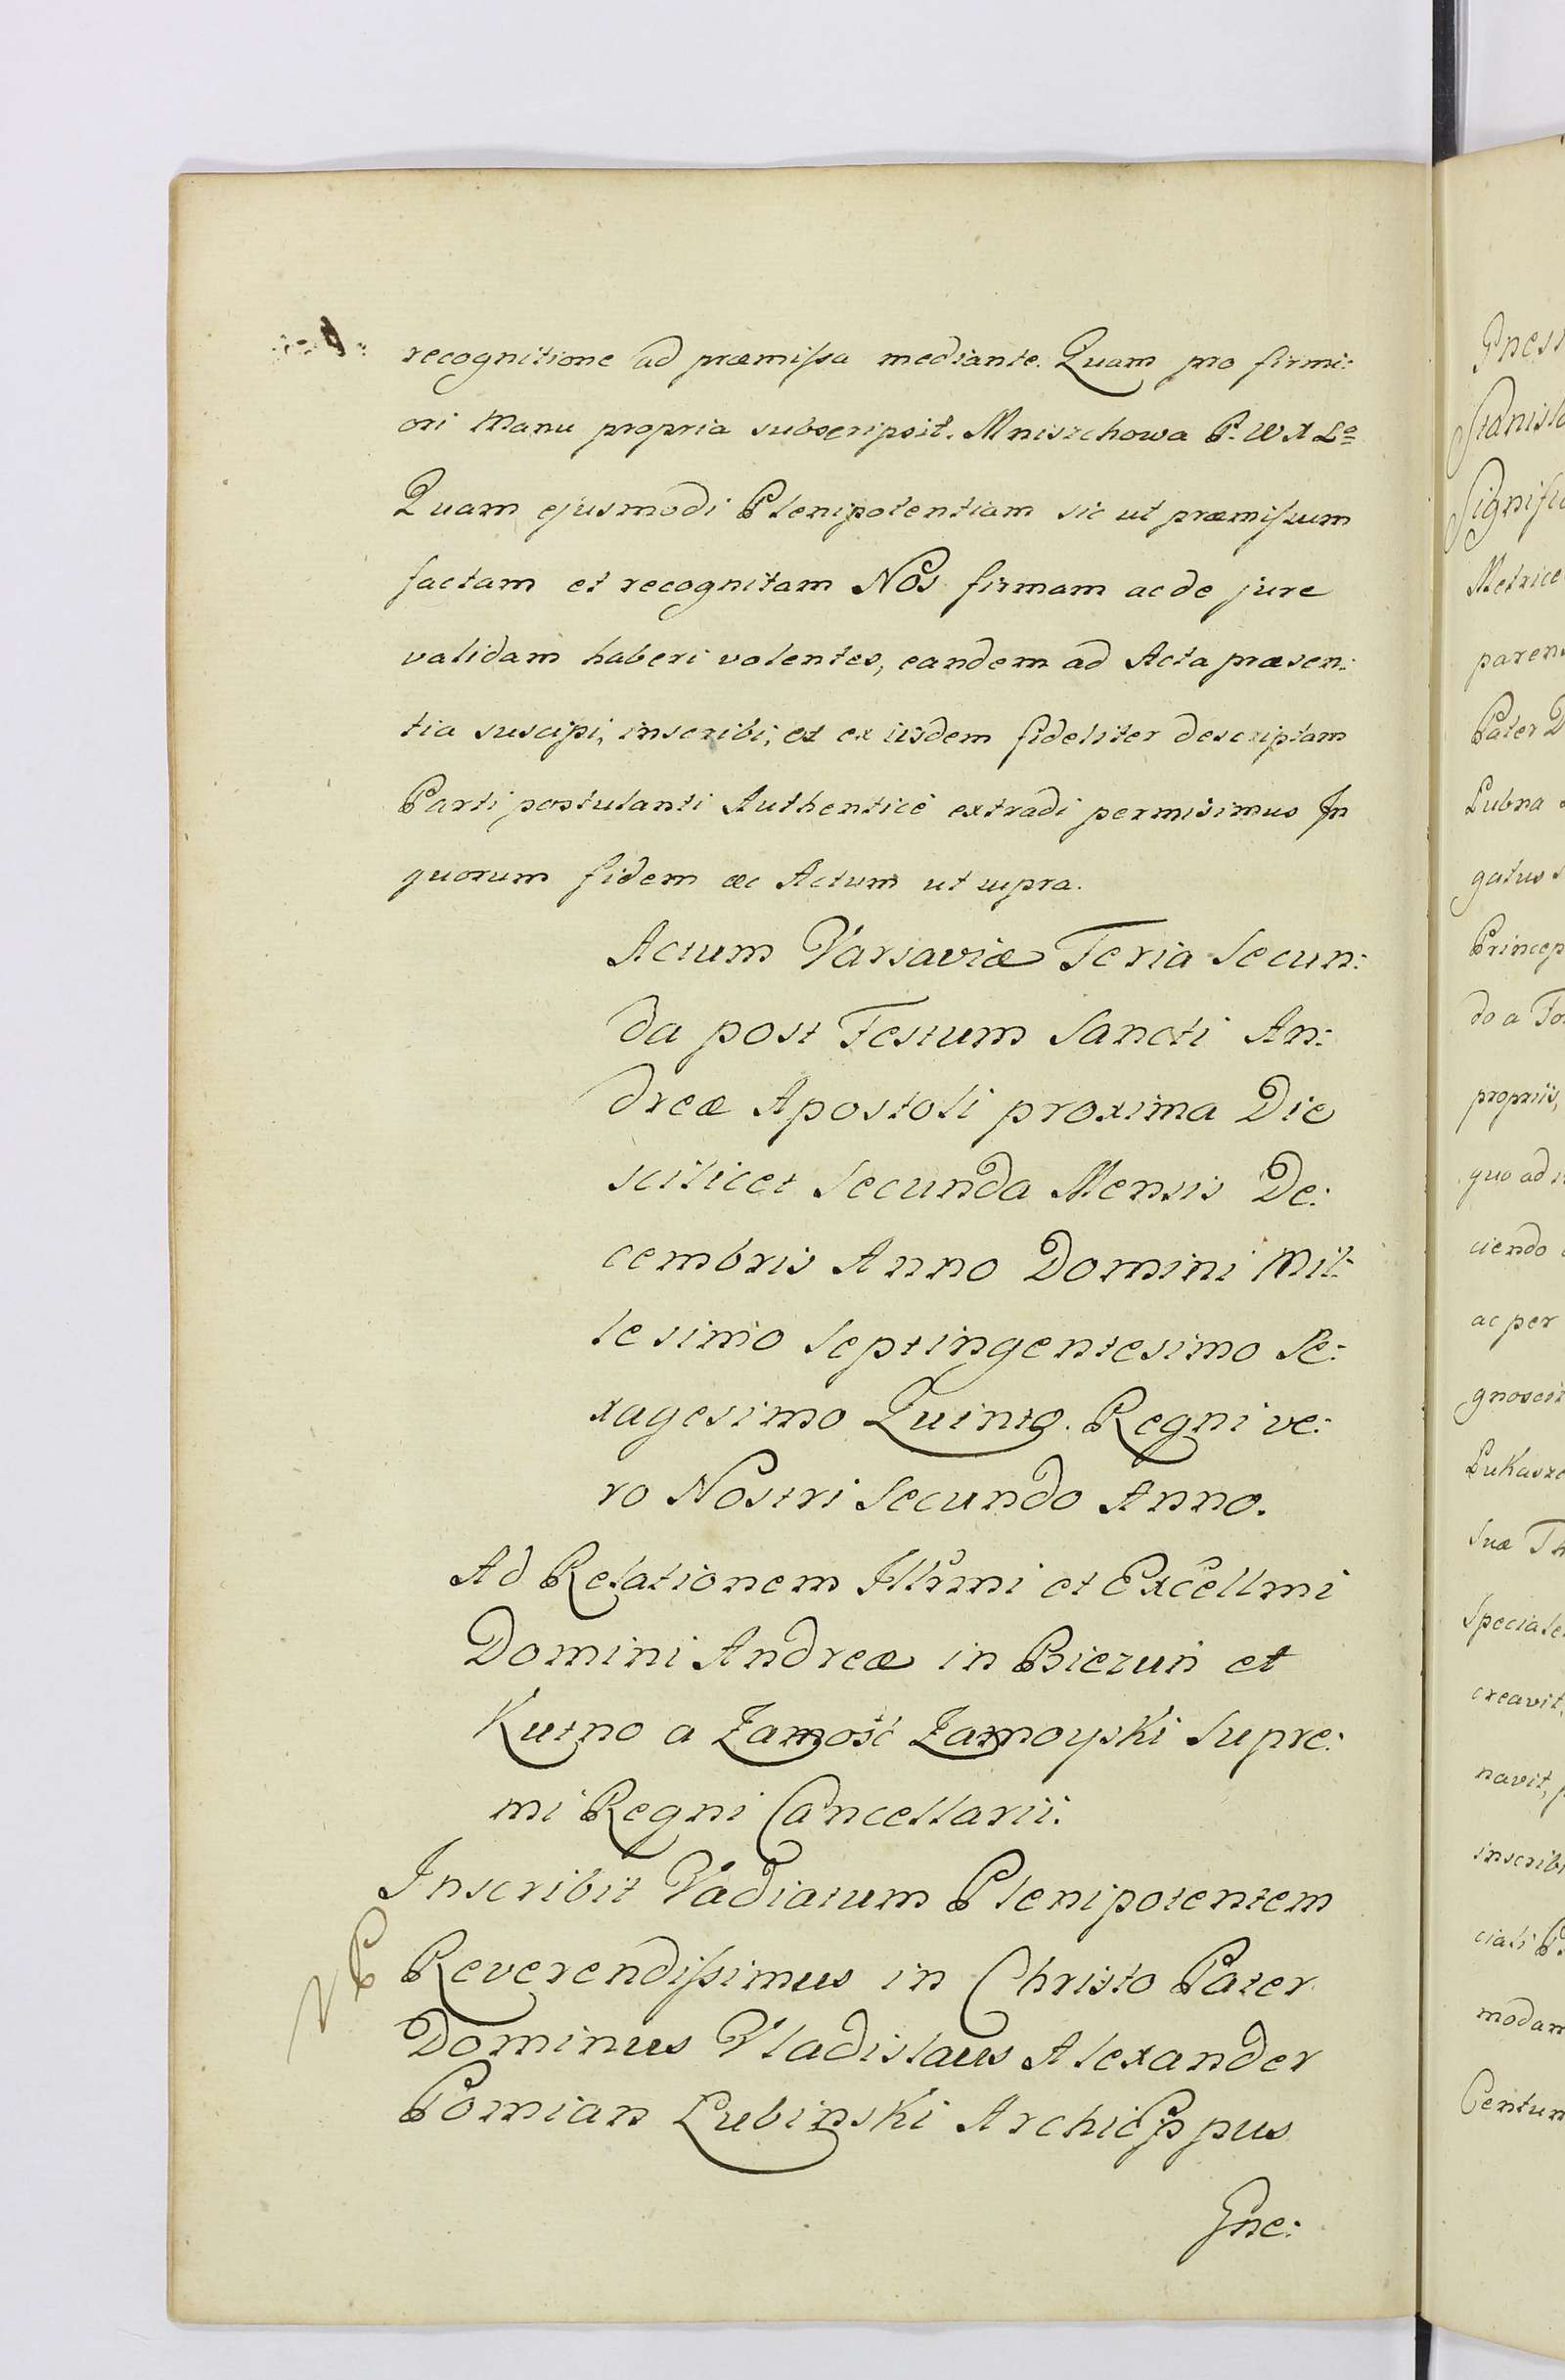 recognitione ad præmissa mediante. Quam pro firmi:
ori Manu propria subscripsit. Mniszchowa P. W X Lo
Quam ejusmodi Plenipotentiam sic ut præmissum
factam et recognitam Nos firmam ac de jure
validam haberi volentes, eandem ad Acta præsen:
tia suscipi, inscribi, et ex iisdem fideliter descriptam
Parti postulanti Authenticè extradi permisimus In
quorum fidem &c Actum ut supra.
Actum Varsaviæ Feria Secun:
da post Festum Sancti An:
dreæ Apostoli proxima Die
scilicet Secunda Mensis De:
cembris Anno Domini Mil:
lesimo Septingentesimo Se:
xagesimo Quinto. Regni ve:
ro Nostri Secundo Anno.
Ad Relationem Illrmi et Excellmi
Domini Andreæ in Biezuń et
Kutno a Zamość Zamoyski Supre:
mi Regni Cancellarii.
Inscribit Vadiatum Plenipotentem
Reverendissimus in Christo Pater
Dominus Vladislaus Alexander
Pomian Lubinski Archieppus
Gne:
Stanisla
Metrice
paren
Pater D
Lubna
gatus
Princep
do a To
propriis,
quo ad
ciendo
ac per
gnoscit
Lukasz
suæ Th
Speciale
creavit,
navit,
inscribi
ciali P
modam
Centum